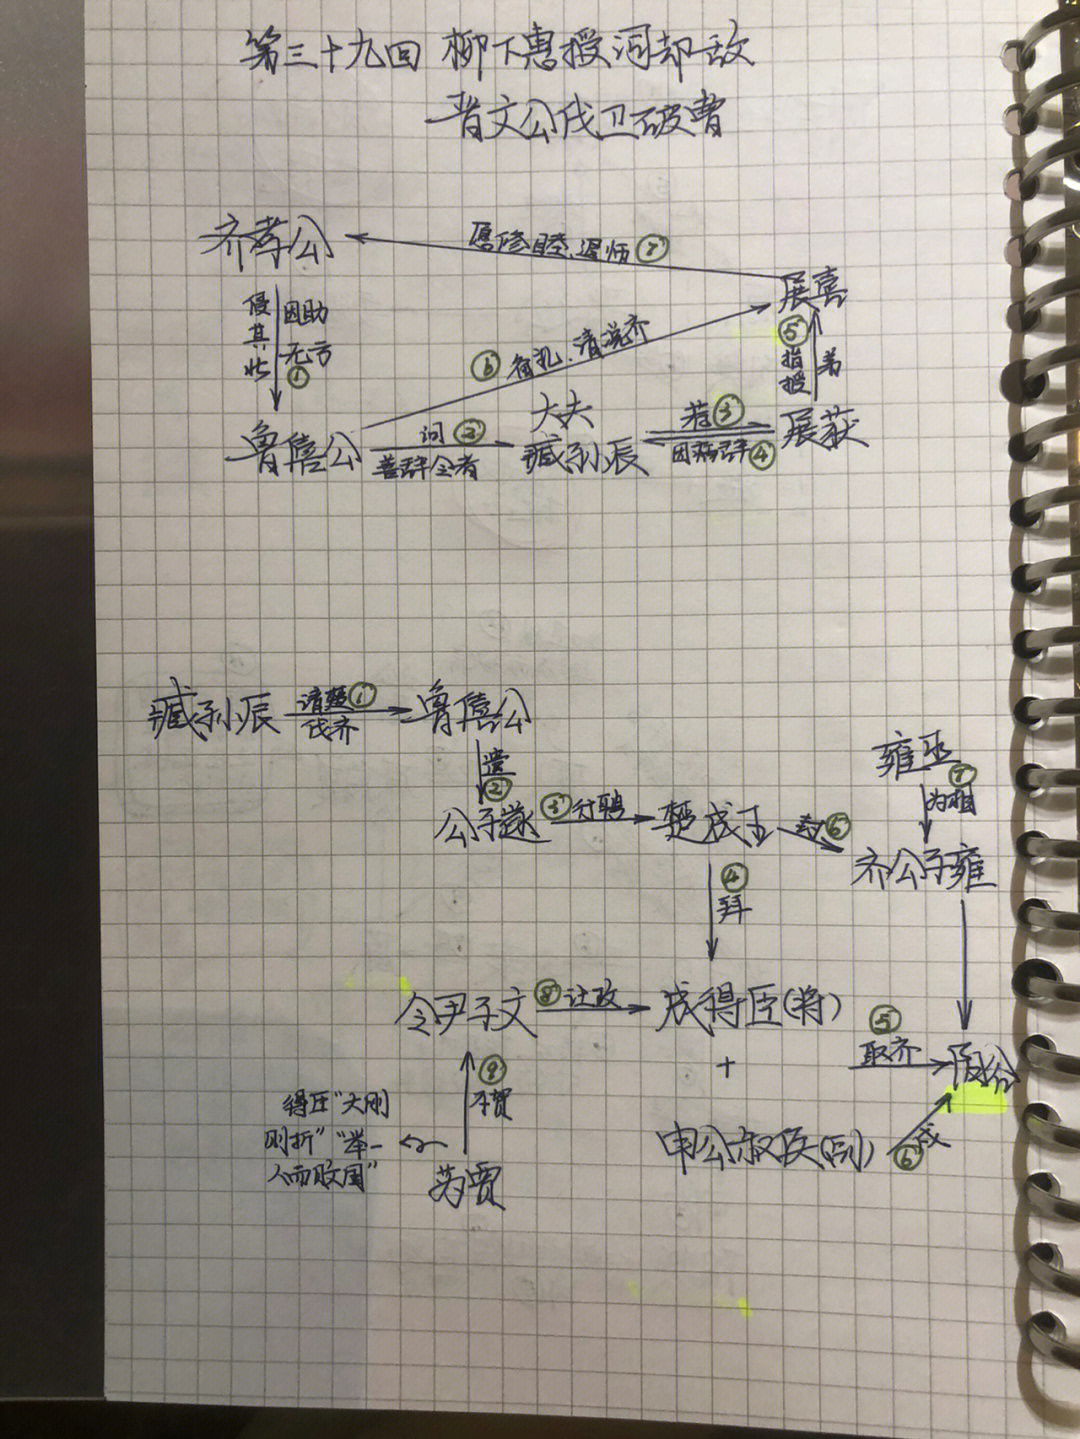 第三十九回 柳下惠授词却敌
晋文公伐卫破曹
齐孝公
愿修睦、退师⑦
展喜
侵其北
因助无亏①
⑤指授
荐
⑥ 有礼、请说齐
鲁僖公
问②
善辞令者
大夫
臧孙辰
荐③
因病辞④
展获
臧孙辰
请楚①
伐齐
鲁僖公
遣②
公子遂
③行聘
楚成王
⑥
雍巫
⑦
为相
齐公子雍
④拜
令尹子文
⑧让政
成得臣(将)
+
⑤
取齐
阳谷
申公叔侯(副)
⑥戍
⑨
不贺
蒍贾
得臣"大刚
则折""举一
人而败国"